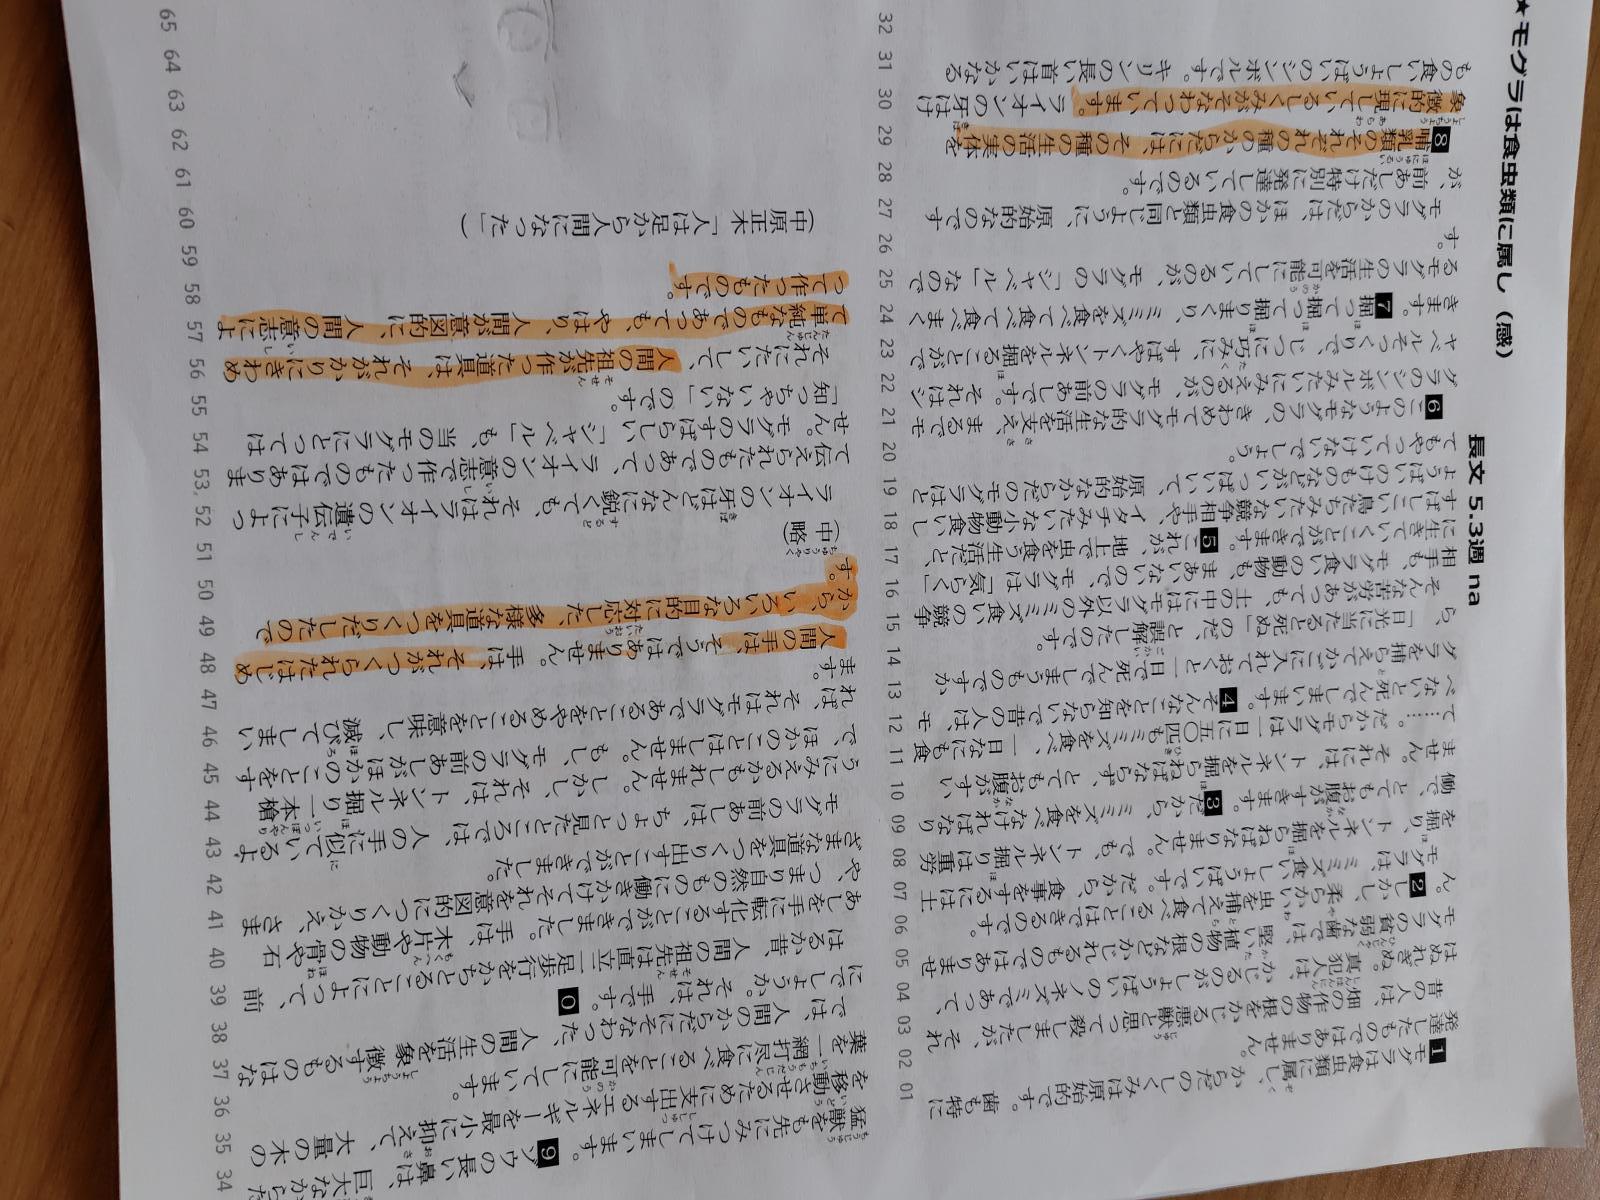 ★モグラは食虫類に属し（感）
長文 5.3週 na
01 1モグラは食虫類に属し、からだのしくみは原始的です。歯も特に
02 発達したものではありません。
03 昔の人は、畑の作物の根をかじる悪獣と思って殺しましたが、それ
04 はぬれぎぬ。真犯人は、かじるのがしょうばいのノネズミであって、
05 モグラの貧弱な歯では、堅い植物の根などかじれるものではありませ
06 ん。2しかし、柔らかい虫を捕えて食べることはできるのです。
07 モグラは、ミミズ食いしょうばいです。だから、食事をするには土
08 を掘り、トンネルを掘らねばなりません。でも、トンネル掘りは重労
09 働で、とてもお腹がすきます。3だから、ミミズを食べなければなり
10 ません。それには、トンネルを掘らねばならず、とてもお腹がすい
11 て……。だからモグラは一日に五〇匹もミミズを食べ、一日なにも食
12 べないと死んでしまいます。4そんなことを知らないで昔の人は、モ
13 グラを捕らえてかごに入れておくと一日で死んでしまうものですか
14 ら、「日光に当たると死ぬ」のだ、と誤解したのです。
15 そんな苦労があっても、土の中にはモグラ以外のミミズ食いの競争
16 相手も、モグラ食いの動物も、まあいないので、モグラは「気らく」
17 に生きていくことができます。5これが、地上で虫を食う生活だと、
18 すばしこい鳥たちみたいな競争相手や、イタチみたいな小動物食いし
19 ょうばいのけものなどがいっぱいいて、原始的なからだのモグラはと
20 てもやっていけないでしょう。
21 6このようなモグラの、きわめてモグラ的な生活を支え、まるでモ
22 グラのシンボルみたいにみえるのが、モグラの前あしです。それはシ
23 ャベルそっくりで、じつに巧みに、すばやくトンネルを掘ることがで
24 きます。7掘って掘って掘りまくり、ミミズを食べて食べて食べまく
25 るモグラの生活を可能にしているのが、モグラの「シャベル」なので
26 す。
27 モグラのからだは、ほかの食虫類と同じように、原始的なのです
28 が、前あしだけ特別に発達しているのです。
29 8哺乳類のそれぞれの種のからだには、その種の生活の実体を
30 象徴的に現しているしくみがそなわっています。ライオンの牙はけ
31 もの食いしょうばいのシンボルです。キリンの長い首はいかなる
32
34 猛獣をも先にみつけてしまいます。9ゾウの長い鼻は、巨大なからだ
35 を移動させるために支出するエネルギーを最小に抑えて、大量の木の
36 葉を一網打尽に食べることを可能にしています。
37 では、人間のからだにそなわった、人間の生活を象徴するものはな
38 にでしょうか。それは、手です。0
39 はるか昔、人間の祖先は直立二足歩行をかちとることによって、前
40 あしを手に転化することができました。手は、木片や動物の骨や石
41 や、つまり自然のものに働きかけてそれを意図的につくりかえ、さま
42 ざまな道具をつくり出すことができました。
43 モグラの前あしは、ちょっと見たところでは、人の手に似ているよ
44 うにみえるかもしれません。しかし、それは、トンネル掘り一本槍
45 で、ほかのことはしません。もし、モグラの前あしがほかのことをす
46 れば、それはモグラであることをやめることを意味し、滅びてしまい
47 ます。
48 人間の手は、そうではありません。手は、それがつくられたはじめ
49 から、いろいろな目的に対応した、多様な道具をつくりだしたので
50 す。
51 （中略）
52 ライオンの牙はどんなに鋭くても、それはライオンの遺伝子によっ
53, て伝えられたものであって、ライオンの意志で作ったものではありま
54 せん。モグラのすばらしい「シャベル」も、当のモグラにとっては
55 「知っちゃいない」のです。
56 それにたいして、人間の祖先が作った道具は、それがかりにきわめ
57 て単純なものであっても、やはり、人間が意図的に、人間の意志によ
58 って作ったものです。
59
60 （中原正木「人は足から人間になった」）
61
62
63
64
65